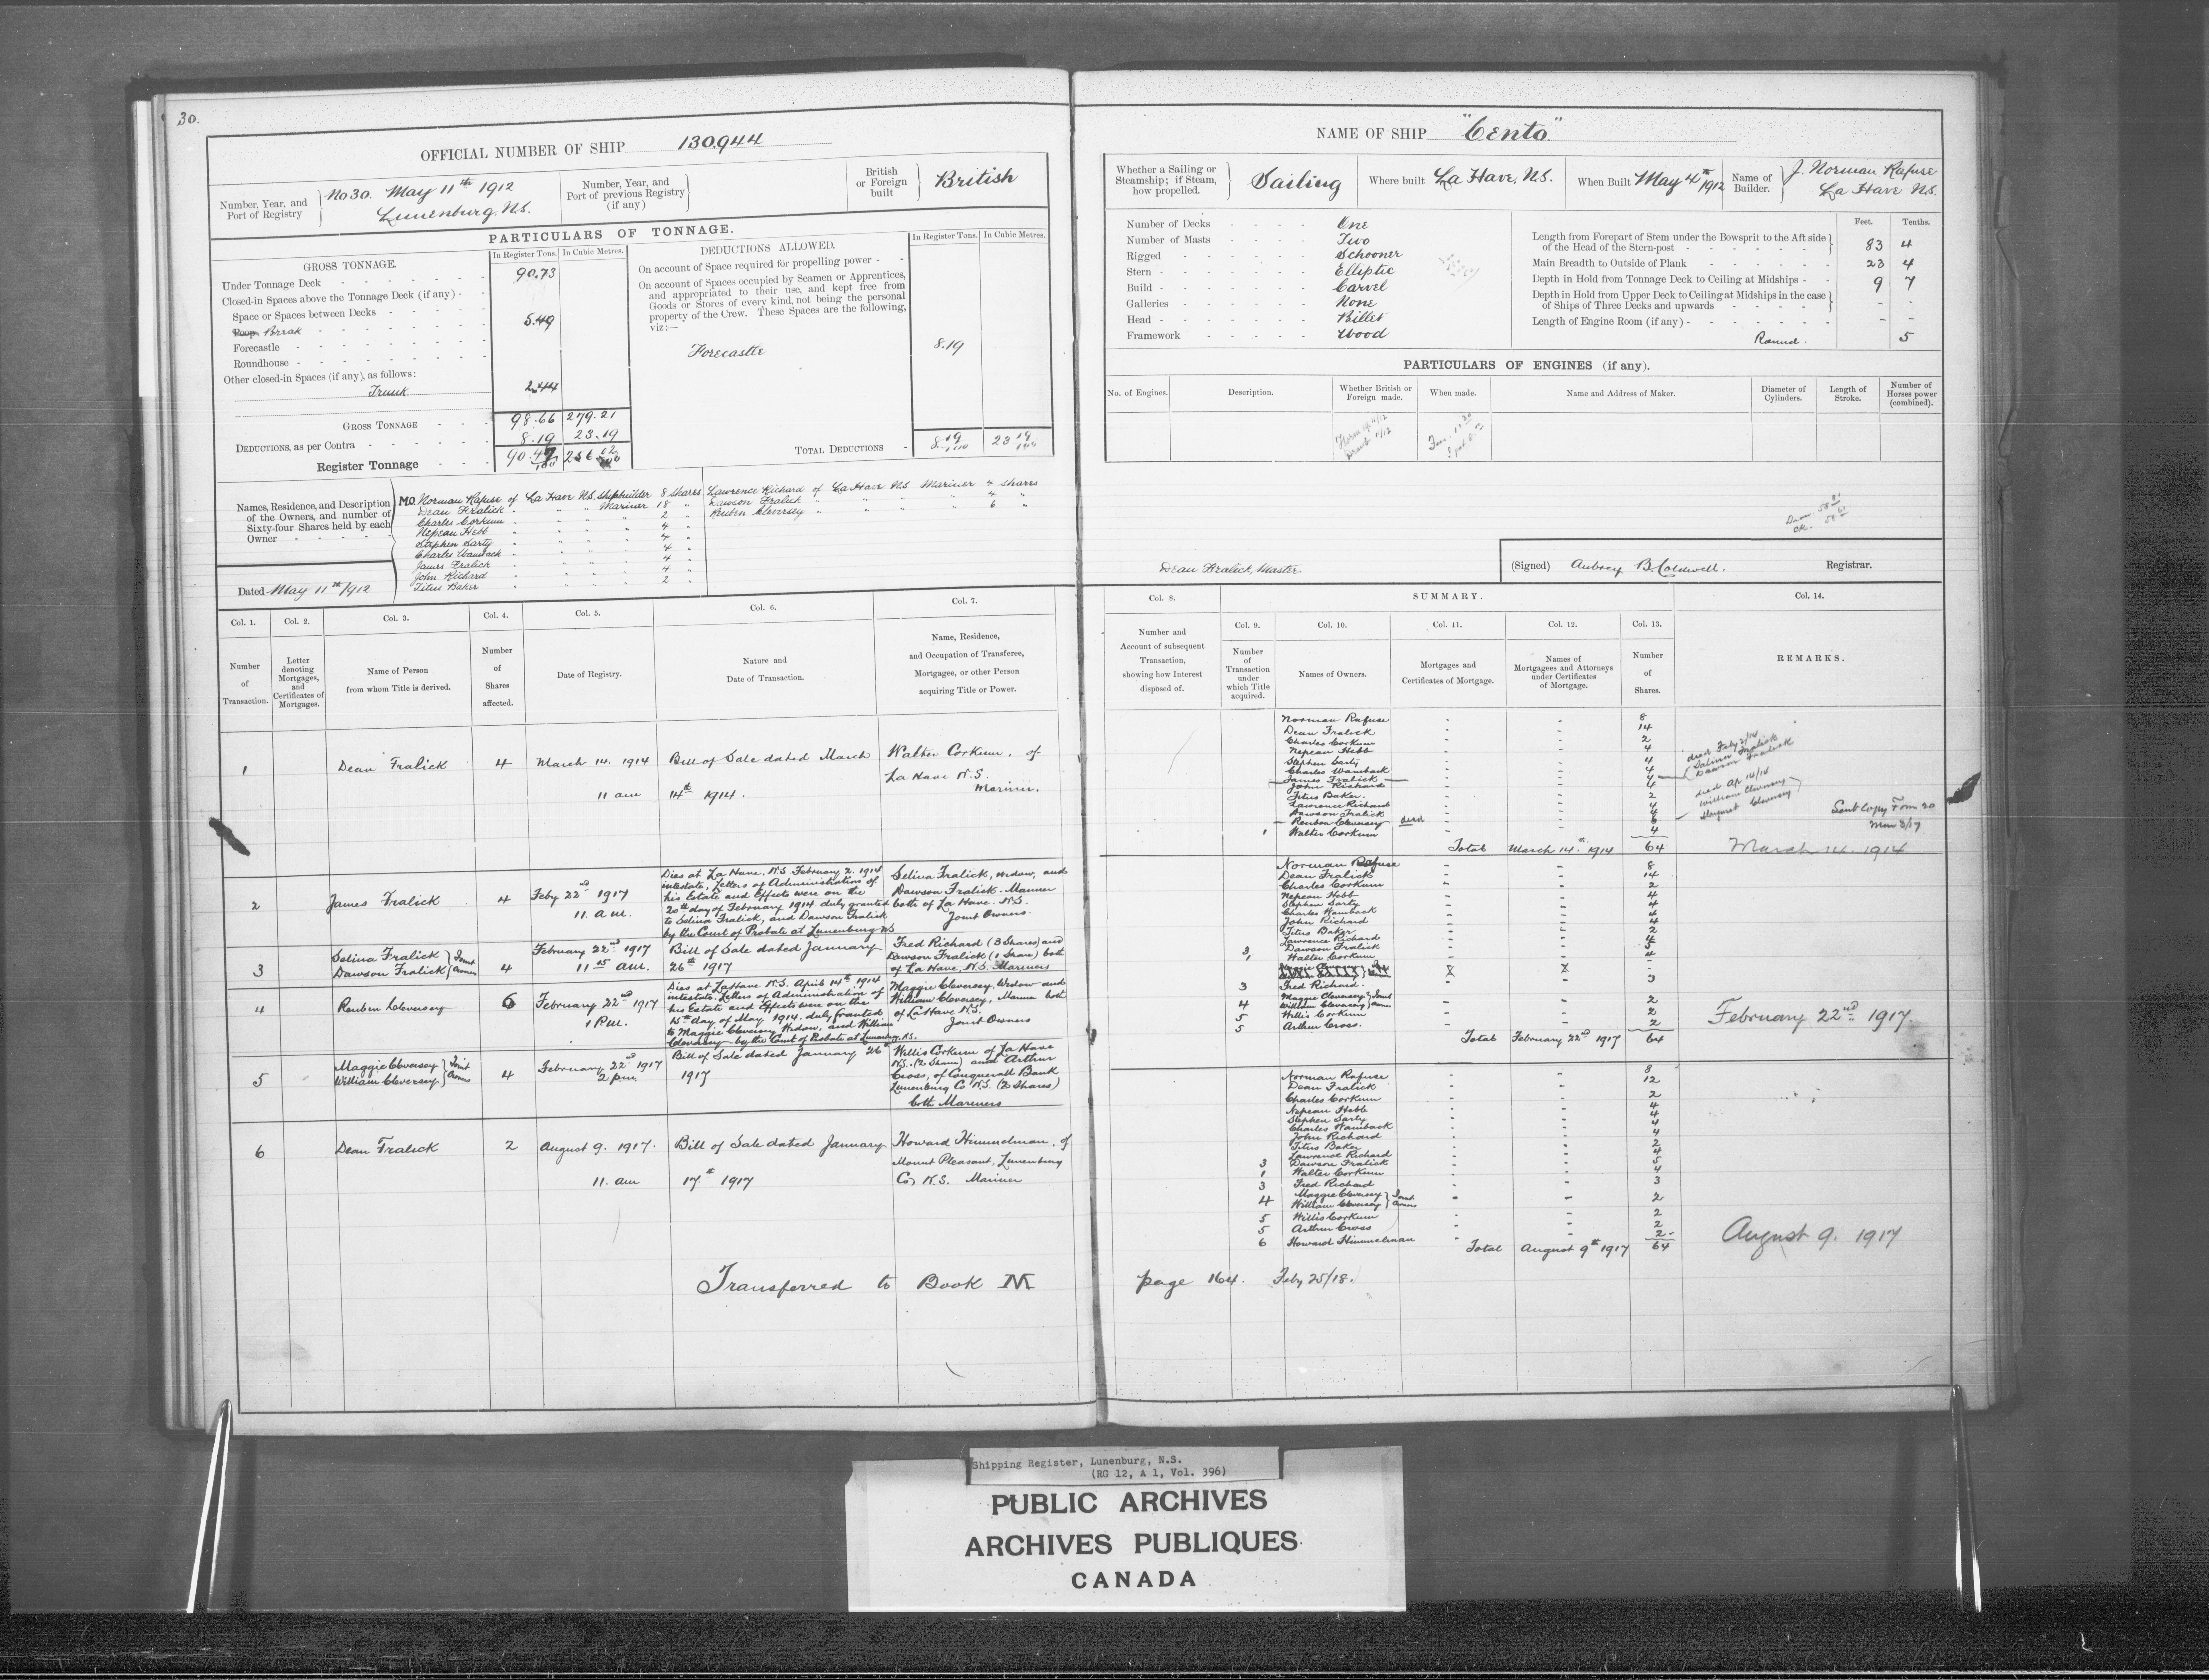 30.
OFFICIAL NUMBER OF SHIP 130944
Number, Year, and Port of Registry } No 30. May 11th 1912
Lunenburg, N.S.
Number, Year, and Port of previous Registry (if any) }
British or Foreign built } British
PARTICULARS OF TONNAGE.
In Register Tons. In Cubic Metres.
GROSS TONNAGE.
Under Tonnage Deck 90.73
Closed-in Spaces above the Tonnage Deck (if any)
Space or Spaces between Decks
Poop Break 5.49
Forecastle
Roundhouse
Other closed-in Spaces (if any), as follows:
Trunk 2.44
GROSS TONNAGE 98.66 279.21
DEDUCTIONS, as per Contra 8.19 23.19
Register Tonnage 90.47/100 256.02/100
DEDUCTIONS ALLOWED.
In Register Tons. In Cubic Metres.
On account of Space required for propelling power
On account of Spaces occupied by Seamen or Apprentices, and appropriated to their use, and kept free from Goods or Stores of every kind, not being the personal property of the Crew. These Spaces are the following, viz:—
Forecastle 8.19
TOTAL DEDUCTIONS 8 19/100 23 19/100
Names, Residence, and Description of the Owners, and number of Sixty-four Shares held by each Owner
M.O. Norman Rafuse of La Have N.S. Shipbuilder 8 Shares
Dean Fralick " " " Mariner 18 "
Charles Corkum " " " " 2 "
Nepean Hebb " " " " 4 "
Stephen Sarty " " " " 4 "
Charles Wamback " " " " 4 "
James Fralick " " " " 4 "
John Richard " " " " 4 "
Titus Baker " " " " 2 "
Lawrence Richard of La Have N.S. Mariner 4 Shares
Dawson Fralick " " " " 4 "
Reuben Cleversey " " " " 6 "
Dated May 11th 1912
NAME OF SHIP "Cento"
Whether a Sailing or Steamship; if Steam, how propelled. } Sailing
Where built La Have, N.S.
When Built May 4th 1912
Name of Builder. } J. Norman Rafuse
La Have N.S.
Number of Decks One
Number of Masts Two
Rigged Schooner
Stern Elliptic
Build Carvel
Galleries None
Head Billet
Framework Wood
Feet. Tenths.
Length from Forepart of Stem under the Bowsprit to the Aft side of the Head of the Stern-post 83 4
Main Breadth to Outside of Plank 23 4
Depth in Hold from Tonnage Deck to Ceiling at Midships 9 7
Depth in Hold from Upper Deck to Ceiling at Midships in the case of Ships of Three Decks and upwards - -
Length of Engine Room (if any) - -
Round. 5
PARTICULARS OF ENGINES (if any).
No. of Engines.
Description.
Whether British or Foreign made.
When made.
Name and Address of Maker.
Diameter of Cylinders.
Length of Stroke.
Number of Horses power (combined).
Dean Fralick, Master.
(Signed) Aubrey B. Coldwell. Registrar.
Col. 1. Number of Transaction.
Col. 2. Letter denoting Mortgages, and Certificates of Mortgages.
Col. 3. Name of Person from whom Title is derived.
Col. 4. Number of Shares affected.
Col. 5. Date of Registry.
Col. 6. Nature and Date of Transaction.
Col. 7. Name, Residence, and Occupation of Transferee, Mortgagee, or other Person acquiring Title or Power.
Col. 8. Number and Account of subsequent Transaction, showing how Interest disposed of.
SUMMARY.
Col. 9. Number of Transaction under which Title acquired.
Col. 10. Names of Owners.
Col. 11. Mortgages and Certificates of Mortgage.
Col. 12. Names of Mortgagees and Attorneys under Certificates of Mortgage.
Col. 13. Number of Shares.
Col. 14. REMARKS.
1 Dean Fralick 4 March 14. 1914
11 am
Bill of Sale dated March
14th 1914.
Walter Corkum, of
La Have N.S.
Mariner.
2 James Fralick 4 Feby 22nd 1917
11. a.m.
Dies at La Have, N.S. February 2. 1914
intestate, Letters of Administration of
his Estate and Effects were on the
20th day of February 1914 duly granted
to Selina Fralick, and Dawson Fralick
by the Court of Probate at Lunenburg N.S.
Selina Fralick, widow, and
Dawson Fralick. Mariner
both of La Have. N.S.
Joint Owners.
3 Selina Fralick
Dawson Fralick } Joint Owners 4 February 22nd 1917
11 15 am.
Bill of Sale dated January
26th 1917
Fred Richard (3 Shares) and
Dawson Fralick (1 Share) both
of La Have, N.S. Mariners
4 Reuben Cleversey 6 February 22nd 1917
1 P.m.
Dies at La Have N.S. April 14th 1914
intestate. Letters of Administration of
his Estate and Effects were on the
15th day of May 1914. duly granted
to Maggie Cleversey Widow, and William
Cleversey by the Court of Probate at Lunenburg, N.S.
Maggie Cleversey, Widow and
William Cleversey, Mariner both
of La Have N.S.
Joint Owners
5 Maggie Cleversey
William Cleversey } Joint Owners 4 February 22nd 1917
2 pm.
Bill of Sale dated January 26th
1917
Willis Corkum of La Have
N.S. (2 Shares) and Arthur
Cross, of Conquerall Bank
Lunenburg Co N.S. (2 Shares)
both Mariners
6 Dean Fralick 2 August 9. 1917.
11. am
Bill of Sale dated January
17th 1917
Howard Himmelman, of
Mount Pleasant, Lunenburg
Co, N.S. Mariner
Transferred to Book M page 164. Feby 25/18.
Norman Rafuse - - 8
Dean Fralick - - 14
Charles Corkum - - 2
Nepean Hebb - - 4
Stephen Sarty - - 4
Charles Wamback - - 4
James Fralick - - 4
John Richard - - 4
Titus Baker. - - 2
Lawrence Richard - - 4
Dawson Fralick - - 4
Reuben Cleversey dead - 6
1 Walter Corkum - - 4
Total March 14th 1914 64
died Feby 2/14
Selina Fralick
Dawson Fralick
died Ap 14/14
William Cleversey
Margaret Cleversey
Sent Copy Form 20
Mar 3/17
March 14. 1914
Norman Rafuse - - 8
Dean Fralick - - 14
Charles Corkum - - 2
Nepean Hebb - - 4
Stephen Sarty - - 4
Charles Wamback - - 4
John Richard - - 4
Titus Baker - - 2
Lawrence Richard - - 4
3 Dawson Fralick - - 5
1 Walter Corkum - - 4
3 Fred Richard. - - 3
4 Maggie Cleversey
William Cleversey } Joint Owners - - 2
5 Willis Corkum - - 2
5 Arthur Cross. - - 2
Total February 22nd 1917 64
February 22nd 1917.
Norman Rafuse - - 8
Dean Fralick - - 12
Charles Corkum - - 2
Nepean Hebb - - 4
Stephen Sarty - - 4
Charles Wamback - - 4
John Richard - - 4
Titus Baker - - 2
Lawrence Richard - - 4
3 Dawson Fralick - - 5
1 Walter Corkum - - 4
3 Fred Richard - - 3
4 Maggie Cleversey
William Cleversey } Joint Owners - - 2
5 Willis Corkum - - 2
5 Arthur Cross - - 2
6 Howard Himmelman - - 2
Total August 9th 1917 64
August 9. 1917
Shipping Register, Lunenburg, N.S.
(RG 12, A 1, Vol. 396)
PUBLIC ARCHIVES
ARCHIVES PUBLIQUES
CANADA